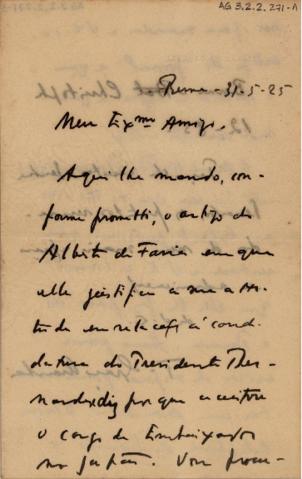 AG 3.2.2.271-A
Roma - 31-5-25
Meu Exmo Amigo,
Aqui lhe mando, con-
forme prometti, o artigo do
Alberto de Faria em que
elle justifica a sua atti-
tude em relação á candi-
datura do Presidente Ber-
nardes e diz porque acceitou
o cargo de Embaixador
no Japão. Vou procu-